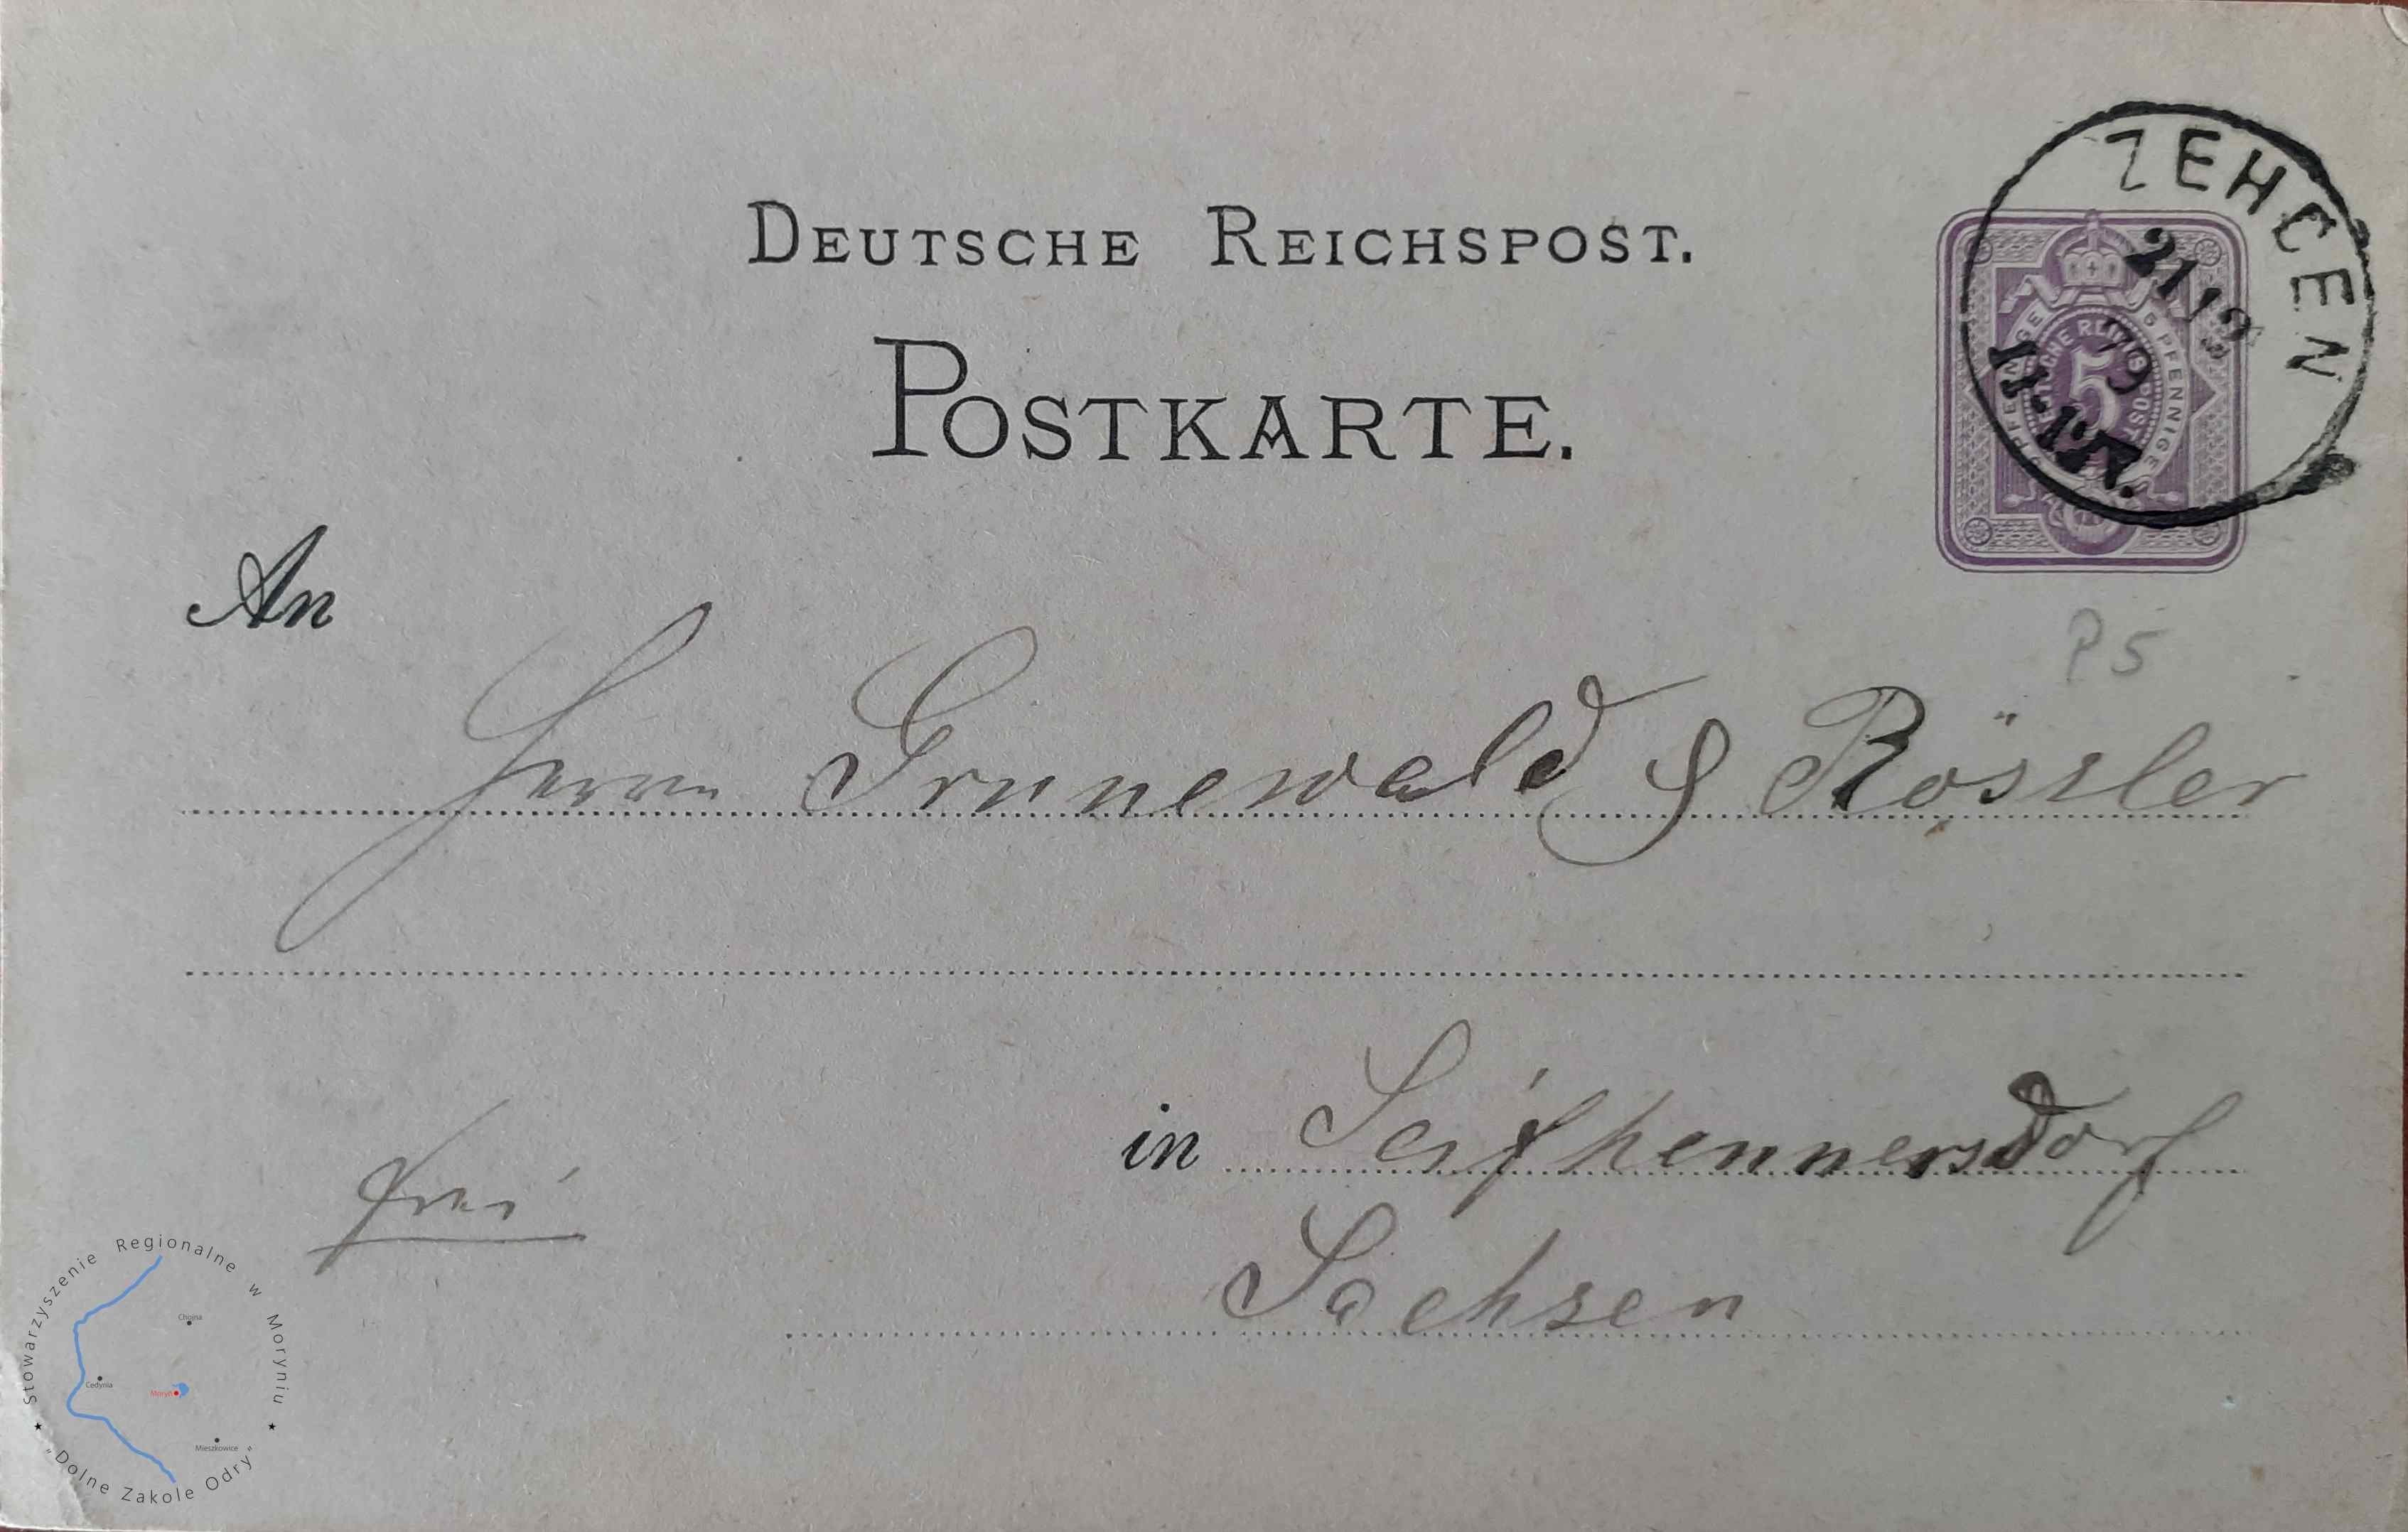 DEUTSCHE REICHSPOST.
POSTKARTE.
ZEHDEN
21 12
79
5 PFENNIGE
DEUTSCHE REICHSPOST
5
P5
An
Herrn Grunewald & Rössler
in Seifhennersdorf
frei
Sachsen
Stowarzyszenie Regionalne w Moryniu
Chojna
Cedynia
Moryń
Mieszkowice
"Dolne Zakole Odry"